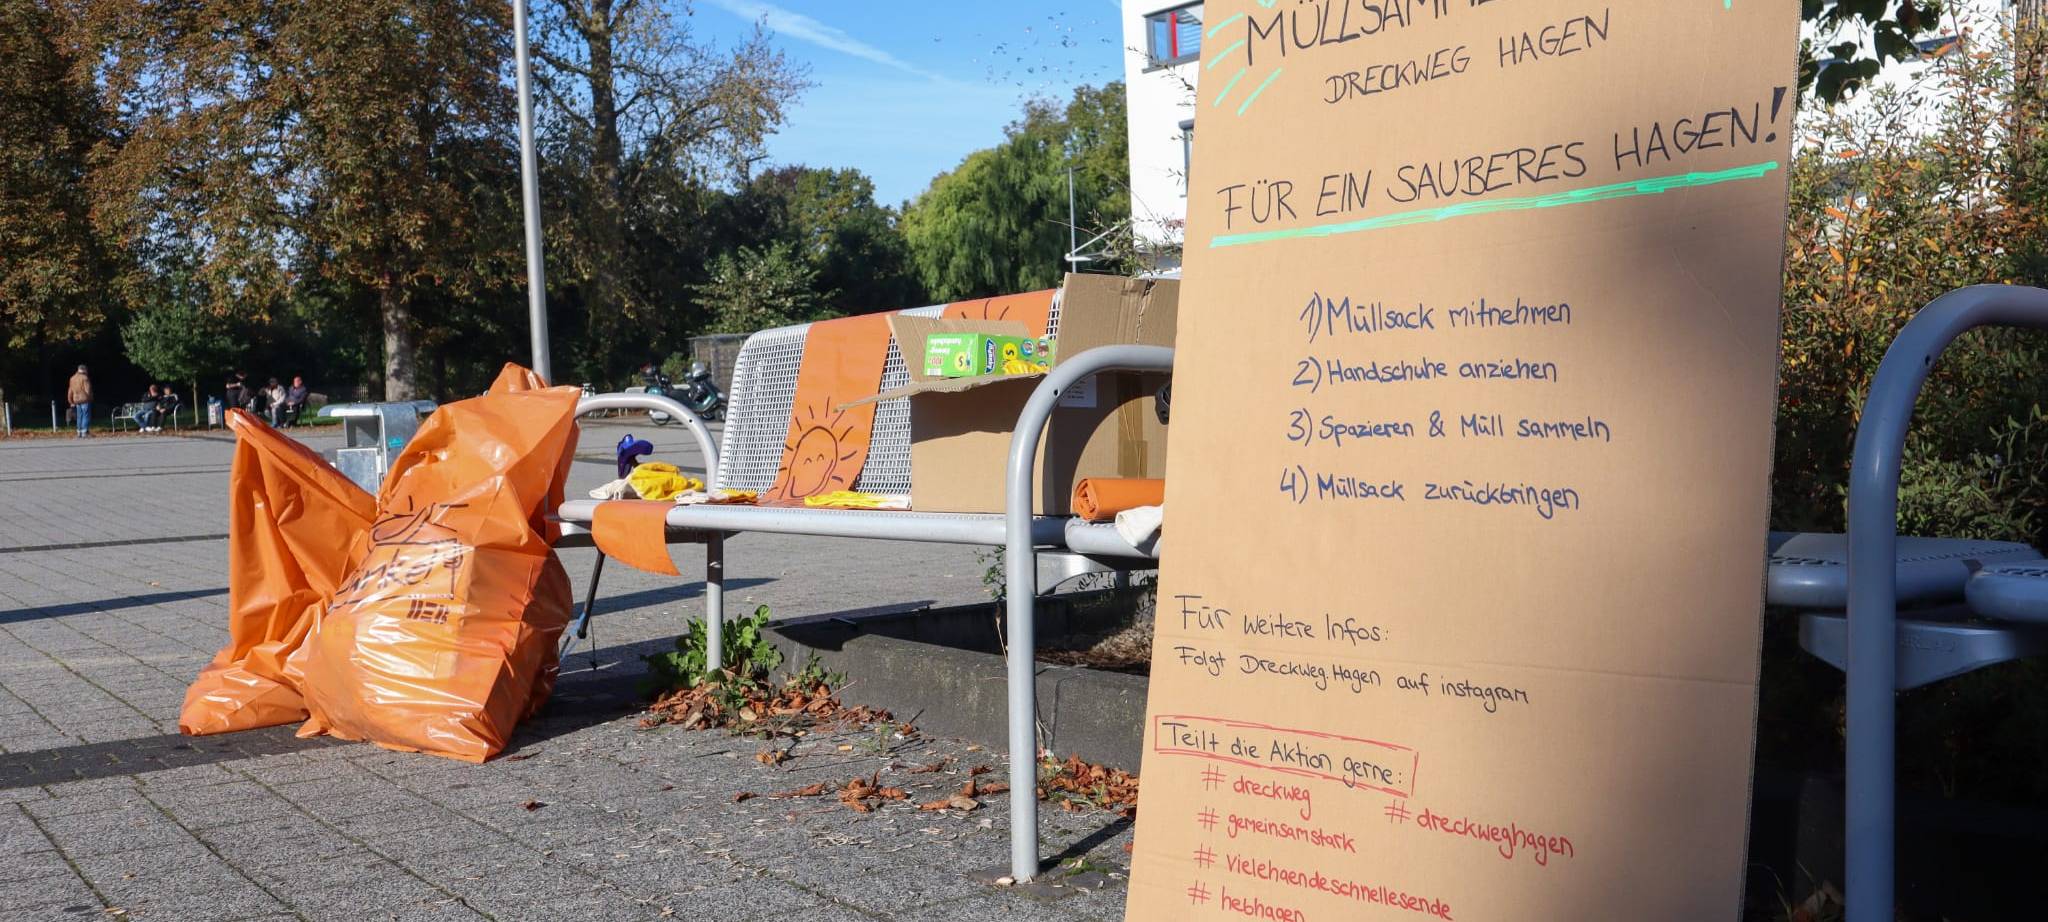 DRECKWEG HAGEN
FÜR EIN SAUBERES HAGEN!
1) Müllsack mitnehmen
2) Handschuhe anziehen
3) Spazieren & Müll sammeln
4) Müllsack zurückbringen
Für weitere Infos:
Folgt Dreckweg.Hagen auf instagram
Teilt die Aktion gerne:
# dreckweg
# dreckweghagen
# gemeinsamstark
# vielehaendeschnellesende
# hebhagen